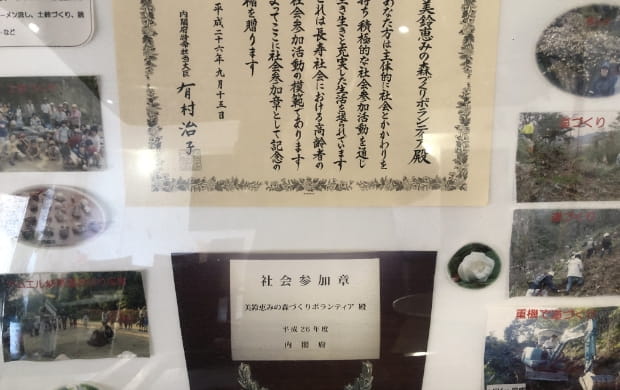 ーメン流し、土鈴づくり、銭
美鈴恵みの森づくりボランティア殿
あなた方は主体的に社会とかかわりを
持ち積極的な社会参加活動を通し
生き生きと充実した生活を送られています
これは長寿社会における高齢者の
社会参加活動の模範であります
よってここに社会参加章として記念の
楯を贈ります
平成二十六年九月十五日
内閣府特命担当大臣
有村治子
道づくり
重機で道づくり
社会参加章
美鈴恵みの森づくりボランティア 殿
平成26年度
内閣府